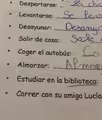 Despertarse:
Levantarse: Se
Desayunar: Desayu
Salir de casa: Sale
Coger el autobús: Co
Almorzar: Almor
Estudiar en la biblioteca:
Correr con su amiga Lucía